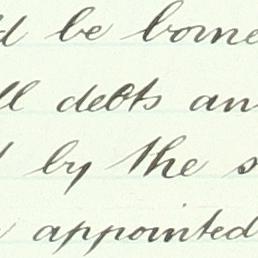 d be borne
ll debts an
d by the s
appointed